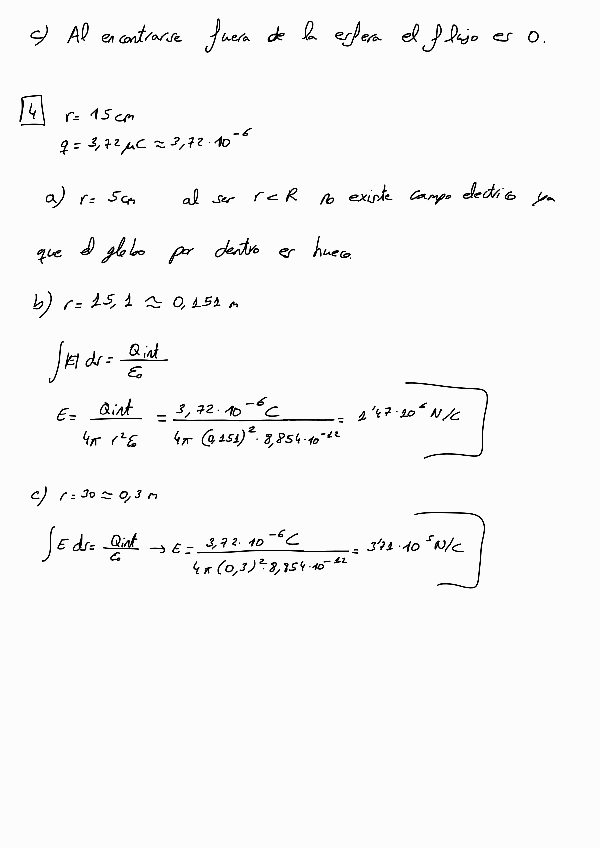 c) Al encontrarse fuera de la esfera el flujo es 0.
4
r= 15cm
q = 3,72 μC ≈ 3,72·10⁻⁶
a) r= 5cm al ser r<R no existe campo electrico ya
que el globo por dentro es hueco.
b) r= 15,1 ≈ 0,151 m
∫|E| ds = Qint/ε₀
E= Qint/4π r²ε₀ = 3,72·10⁻⁶C/4π (0,151)²·8,854·10⁻¹² = 1'47·10⁶ N/C
c) r=30 ≈ 0,3 m
∫E ds= Qint/ε₀ → E= 3,72·10⁻⁶C/4π(0,3)²·8,854·10⁻¹² = 3'71·10⁵ N/C